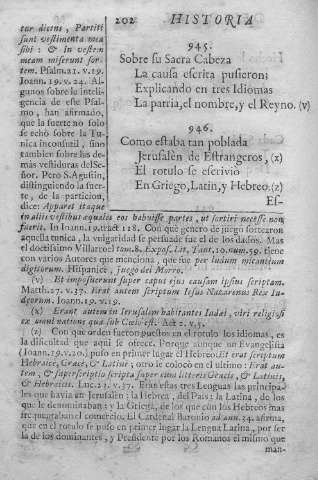 202 HISTORIA
tur dicens, Partiti
sunt vestimenta mea
sibi: & in vestem
meam miserunt sor-
tem. Psalm. 21. v. 19.
Ioann. 19. v. 24. Al-
gunos sobre la inteli-
gencia de este Psal-
mo, han afirmado,
que la suerte no solo
se echò sobre la Tu-
nica inconsutil, sino
tambien sobre las de-
màs vestiduras del Se-
ñor. Pero S. Agustin,
distinguiendo la suer-
te, de la particion,
dice: Apparet itaque
945.
Sobre su Sacra Cabeza
La causa escrita pusieron;
Explicando en tres Idiomas
La patria, el nombre, y el Reyno. (v)
946.
Como estaba tan poblada
Jerusalèn de Estrangeros, (x)
El rotulo se escrivió
En Griego, Latin, y Hebreo. (z)
Es-
in aliis vestibus equales eos habuisse partes, ut sortiri necesse non
fuerit. In Ioann. 19. tract 118. Con què genero de juego sortearon
aquella tunica, la vulgaridad se persuade fue el de los dados. Mas
el doctissimo Villaroel tam. 8. Expos. Lit. Taut. 10. num. 59. tiene con
varios Autores que menciona, que fue per ludum micantium
digitorum. Hispanicè, juego del Morro.
(v) Et imposuerunt super caput ejus causam ipsius scriptam.
Matth. 27. v. 37. Erat autem scriptum Iesus Nazarenus Rex Iu-
dæorum. Ioann. 19. v. 19.
(x) Erant autem in Ierusalem habitantes Iudæi, viri religiosi
ex omni natione quæ sub Cœlo est. Act 2. v. 5.
(z) Con que orden fueron puestos en el rotulo los idiomas, es
la dificultad que aqui se ofrece. Porque aunque un Evangelista
(Ioann. 19. v. 20.) puso en primer lugar el Hebreo. Et erat scriptum
Hebraicè, Græcè, & Latinè; otro le colocò en el ultimo: Erat au-
tem, & superscriptio scripta super eum literis Græcis, & Latinis,
& Hebraicis. Luc. 23. v. 37. Eran estas tres Lenguas las principa-
les que havia en Jerusalèn: la Hebrea, del Pais: la Latina, de los
que le denominaban: y la Griega, de los que con los Hebreos mas
frequentaban el comercio. El Cardenal Baronio ad ann. 34. afirma,
que en el rotulo se puso en primer lugar la Lengua Latina, por ser
la de los dominantes, y Presidente por los Romanos el mismo que
man-